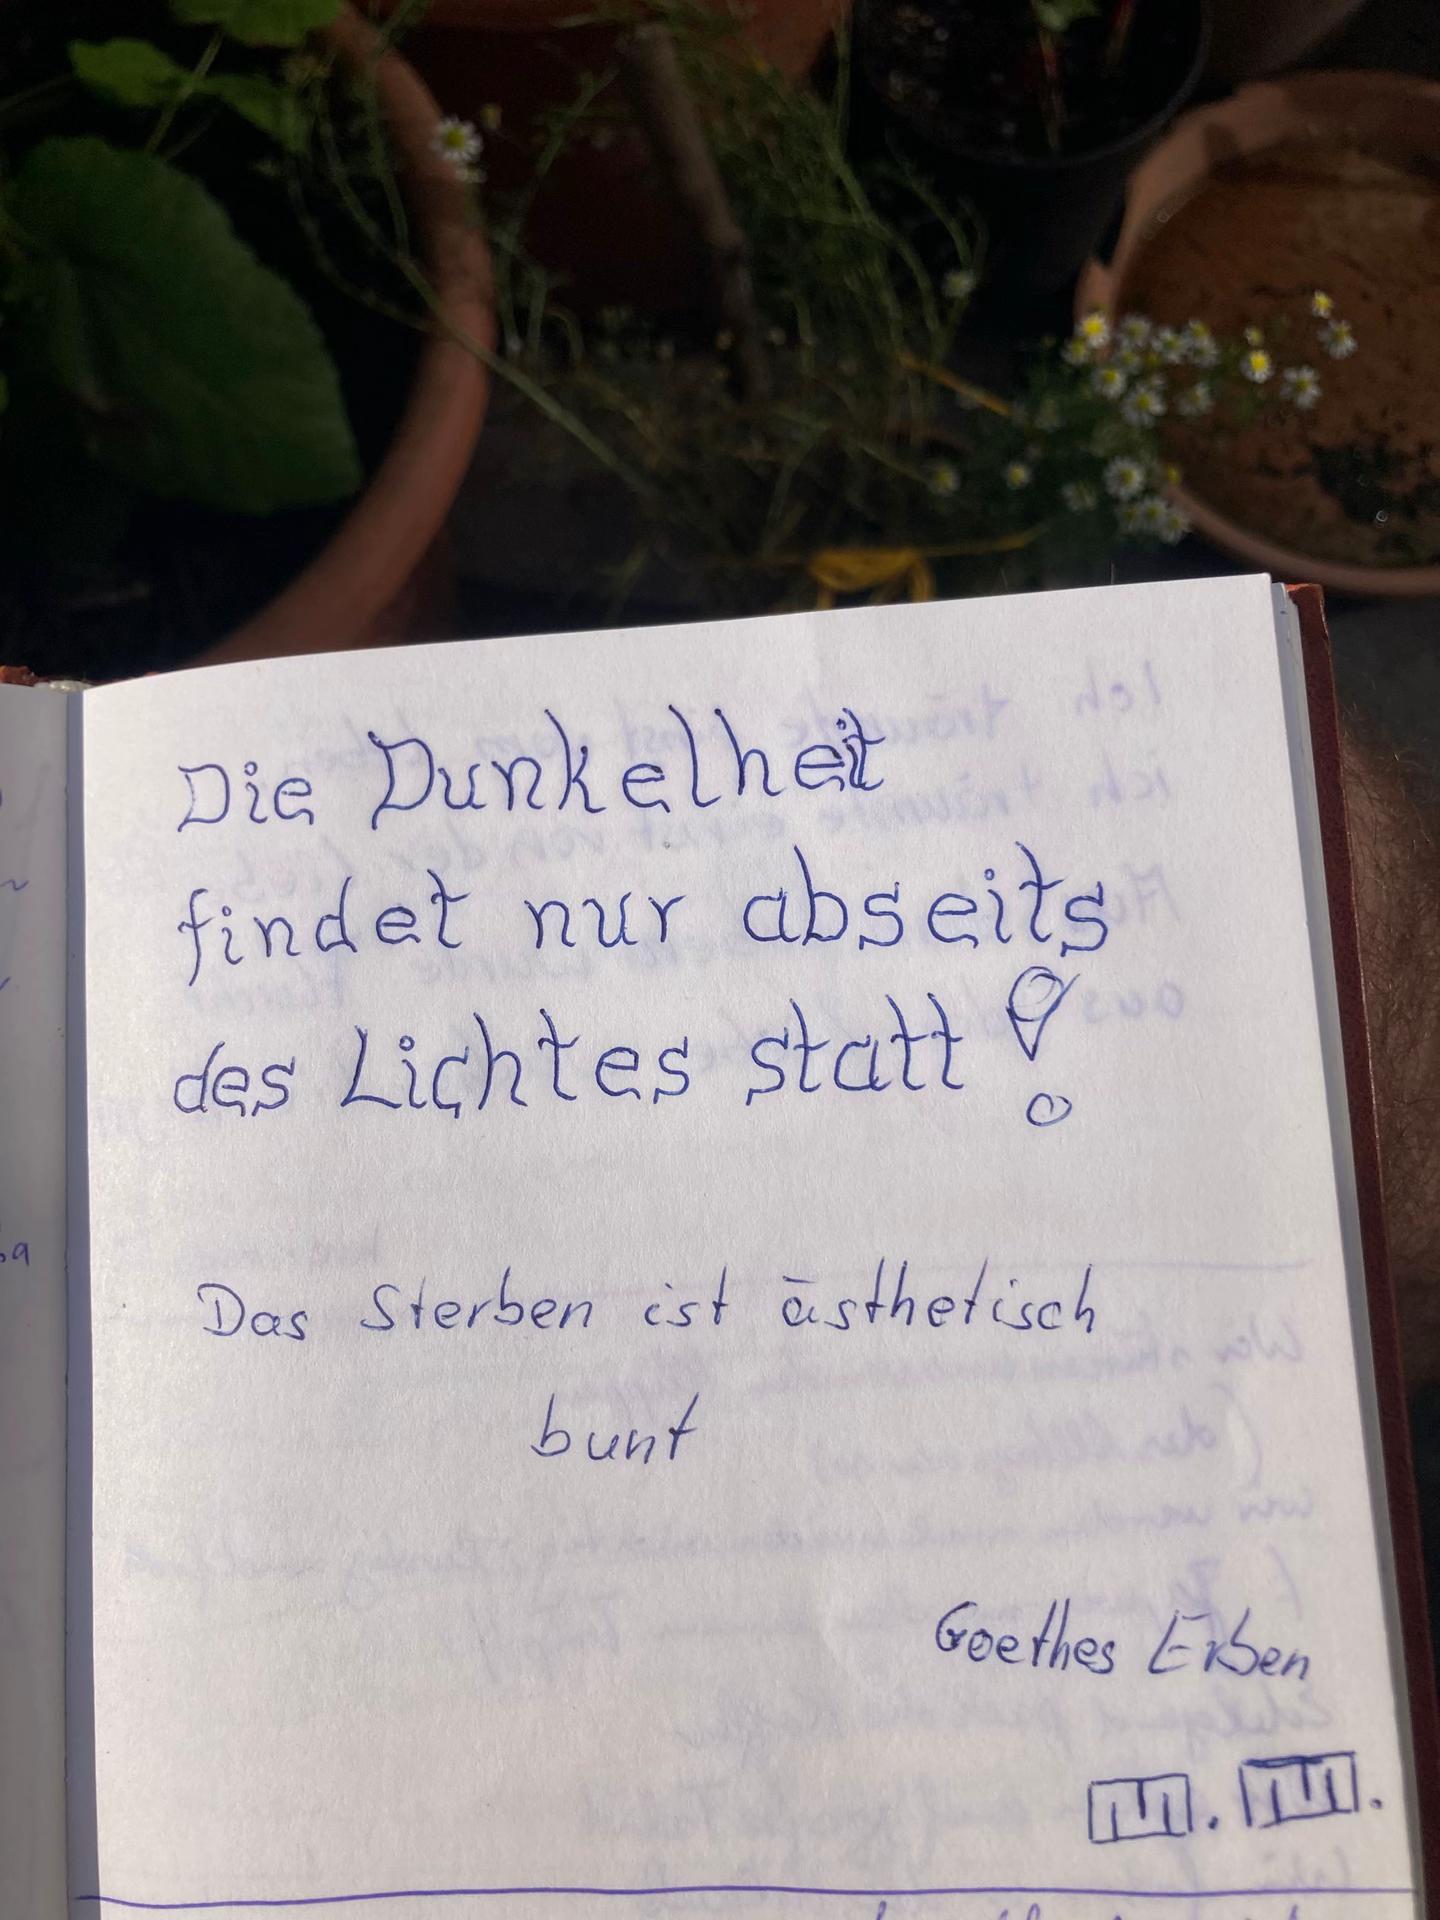 Die Dunkelheit
findet nur abseits
des Lichtes statt!
Das Sterben ist ästhetisch
bunt
Goethes Erben